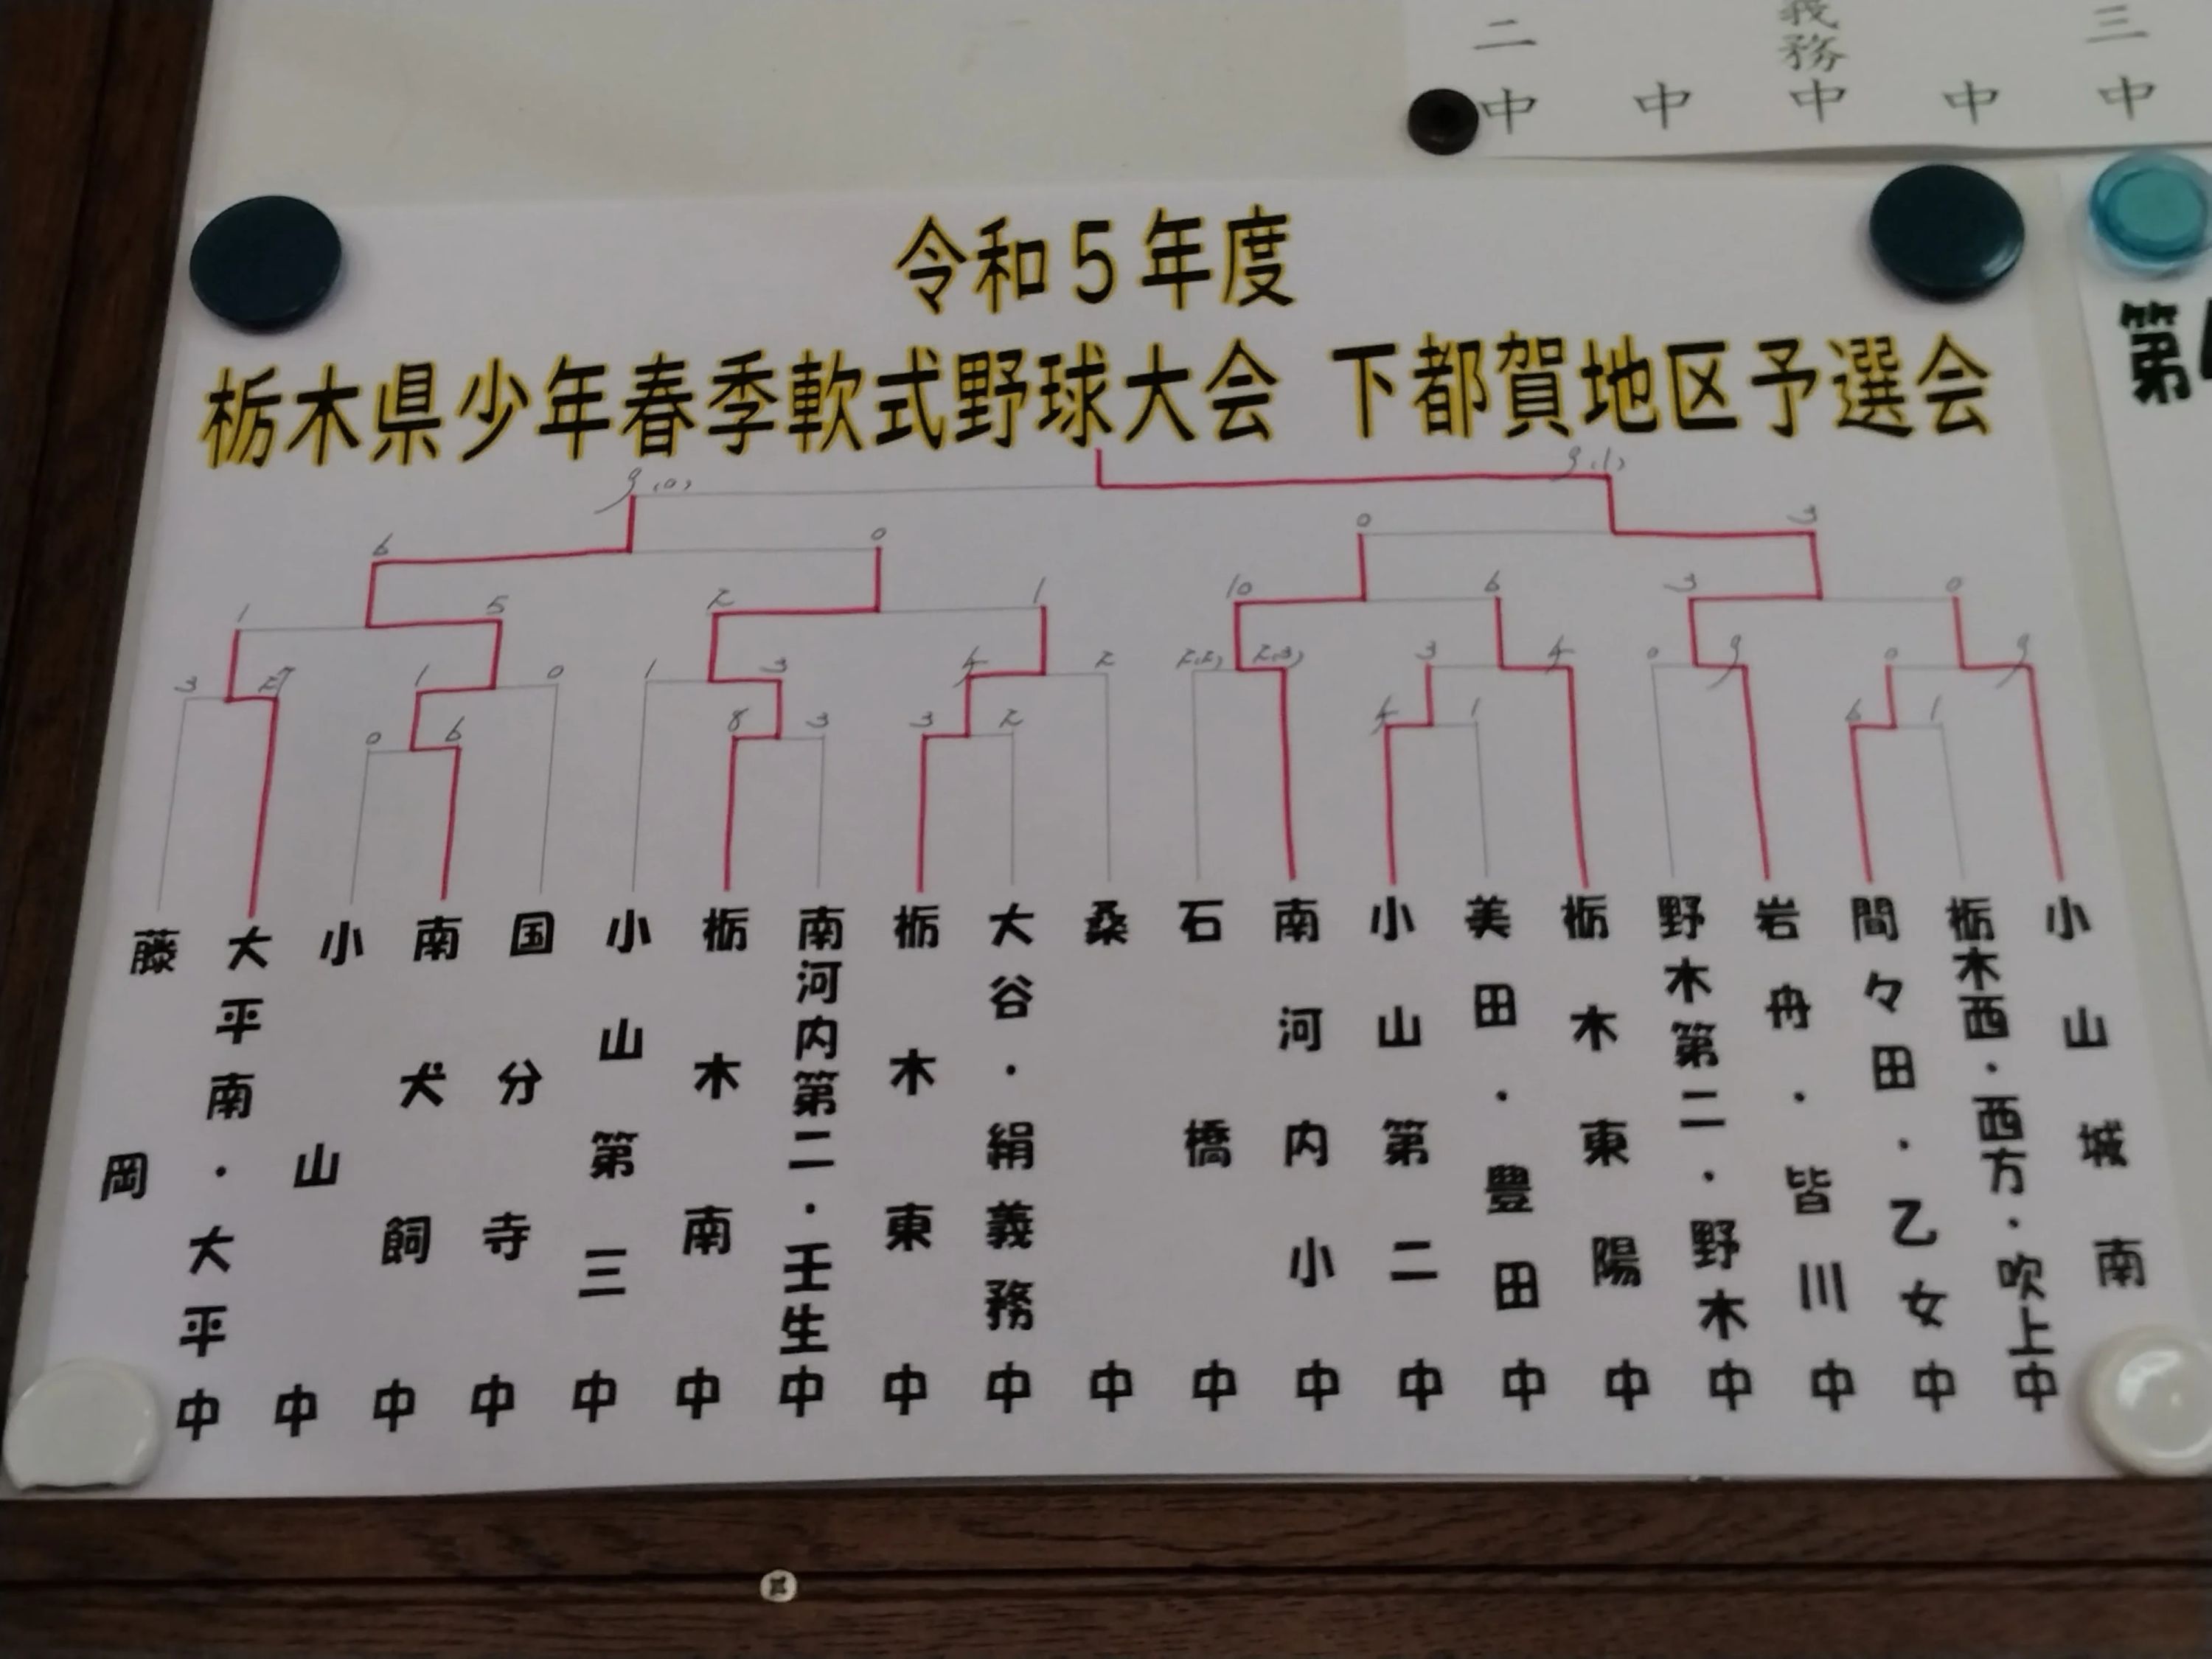 二
義務
三
中 中 中 中 中
令和5年度
栃木県少年春季軟式野球大会 下都賀地区予選会
第
9(0) 9(1)
6 0 0 3
1 5 2 1 10 6 3 0
3 27 1 0 1 3 4 2 2(2) 2(3) 3 4 0 9 0 9
0 6 8 3 3 2 4 1 6 1
藤岡中
大平南・大平中
小山中
南犬飼中
国分寺中
小山第三中
栃木南中
南河内第二・壬生中
栃木東中
大谷・絹義務中
桑中
石橋中
南河内小中
小山第二中
美田・豊田中
栃木東陽中
野木第二・野木中
岩舟・皆川中
間々田・乙女中
栃木西・西方・吹上中
小山城南